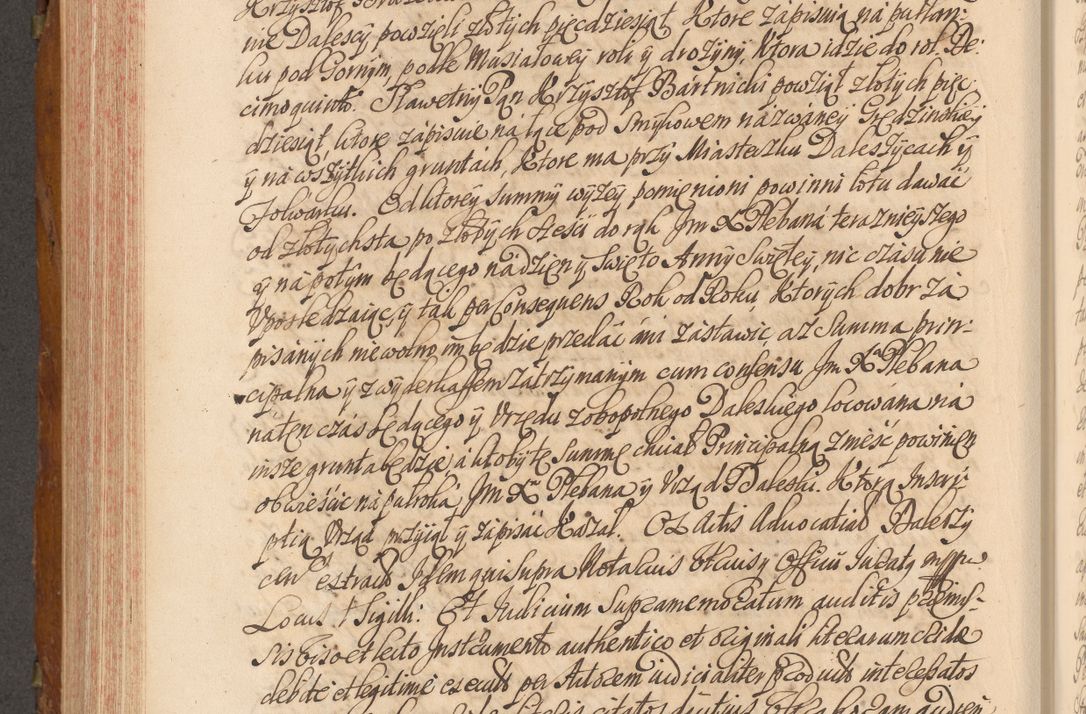 nie Dalescy powzieli złotych pięcdziesiąt Ktore zápisuią ná pułłan-
ku pod Gornym, podle Masiatowey roli y drożyny, Ktora idzie do rol. De-
cimoquinto. Sławetny Pan Krzysztof Bártnicki powziął złotych pięc
dziesiąt, ktore zápisuie ná łące pod Smykowem názwáney Grędzinskiey
y ná wszytkich gruntách, Ktore ma przy Miasteczku Daleszycách y
Folwarku. Od ktorey summy wyżey pomienioni powinni będą dawáć
od złotych sta po złotych sześci do rąk Jm X Plebaná teraznieyszego
y ná potym będącego ná dzien y Swięto Anny Swiętey, nic czásu nie
Vposledzaiąc, y ták per Consequens Rok od Roku Ktorych dobr zá
pisánych niewolno im będzie przedáć áni zástáwić, aż Summa prin-
cipalna y z wyderkaffem zátrzymánym cum consensu Jm Xa Plebana
ná ten czás będącego y Vrzędu zobopolnego Daleskiego locowána ná
insze grunta będzie, á ktoby tę Summę chciał Principalną znieść powinien
obwieścić ná pułroka Jm Xa Plebana y Vrząd Daleski. Ktorą Inscri-
ptią Vrząd przyiął y zápisáć Kazał. Ex Actis Advocatial Daleszy
cen. extract Idem qui supra Notarius otriusq Officii Juraty mppa
Locus † Sigilli. Et Judicium Supramemoratum auditis præmis-
sis viso et lecto Instrumento authentico et originali literarum cridæ
debite et legitime execut per Actorem iudicialiter product interessatos